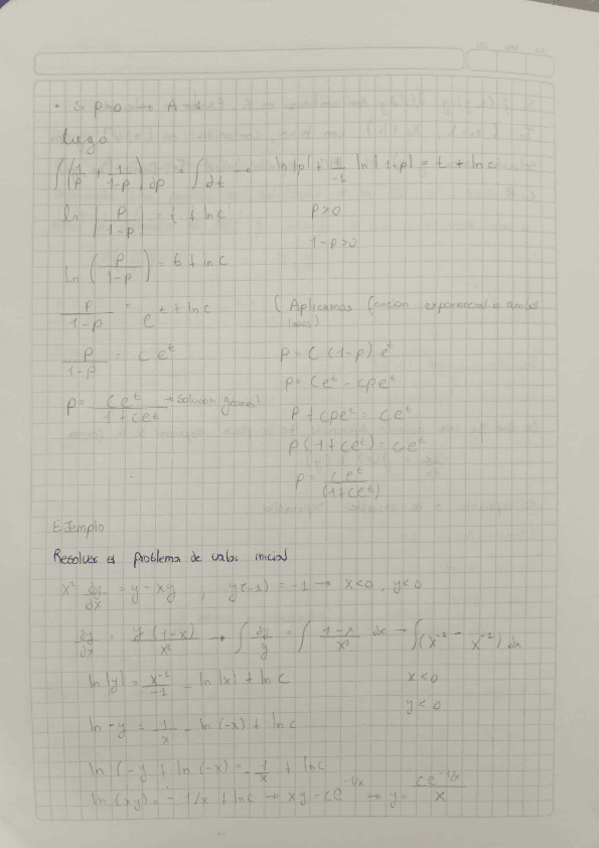 • Si p=0 → A=1
luego
∫(1/p + 1/(1-p)) dp = ∫dt → ln|p| + 1/-1 ln|1-p| = t + ln c
ln |p/(1-p)| = t + ln c    p>0
1-p>0
Ln (p/(1-p)) = t + ln c
p/(1-p) = e^(t + ln c)    (Aplicamos función exponencial a ambos lados)
p/(1-p) = C e^t    p = C(1-p) e^t
p = Ce^t - cpe^t
p = Ce^t/(1+ce^t) → Solución general    p + cpe^t = Ce^t
p(1+ce^t) = ce^t
p = ce^t/(1+ce^t)
Ejemplo
Resolver el problema de valor inicial
x² dy/dx = y - xy , y(-1) = -1 → x<0, y<0
dy/dx = y(1-x)/x² → ∫ dy/y = ∫ (1-x)/x² dx → ∫(x^-2 - x^-1) dx
ln|y| = x^-1/-1 - ln|x| + ln c    x<0
y<0
ln -y = 1/x - ln(-x) + ln c
ln(-y + ln(-x) = -1/x + ln c
ln(xy) = -1/x + ln c → xy = ce^(-1/x) → y = ce^(-1/x)/x